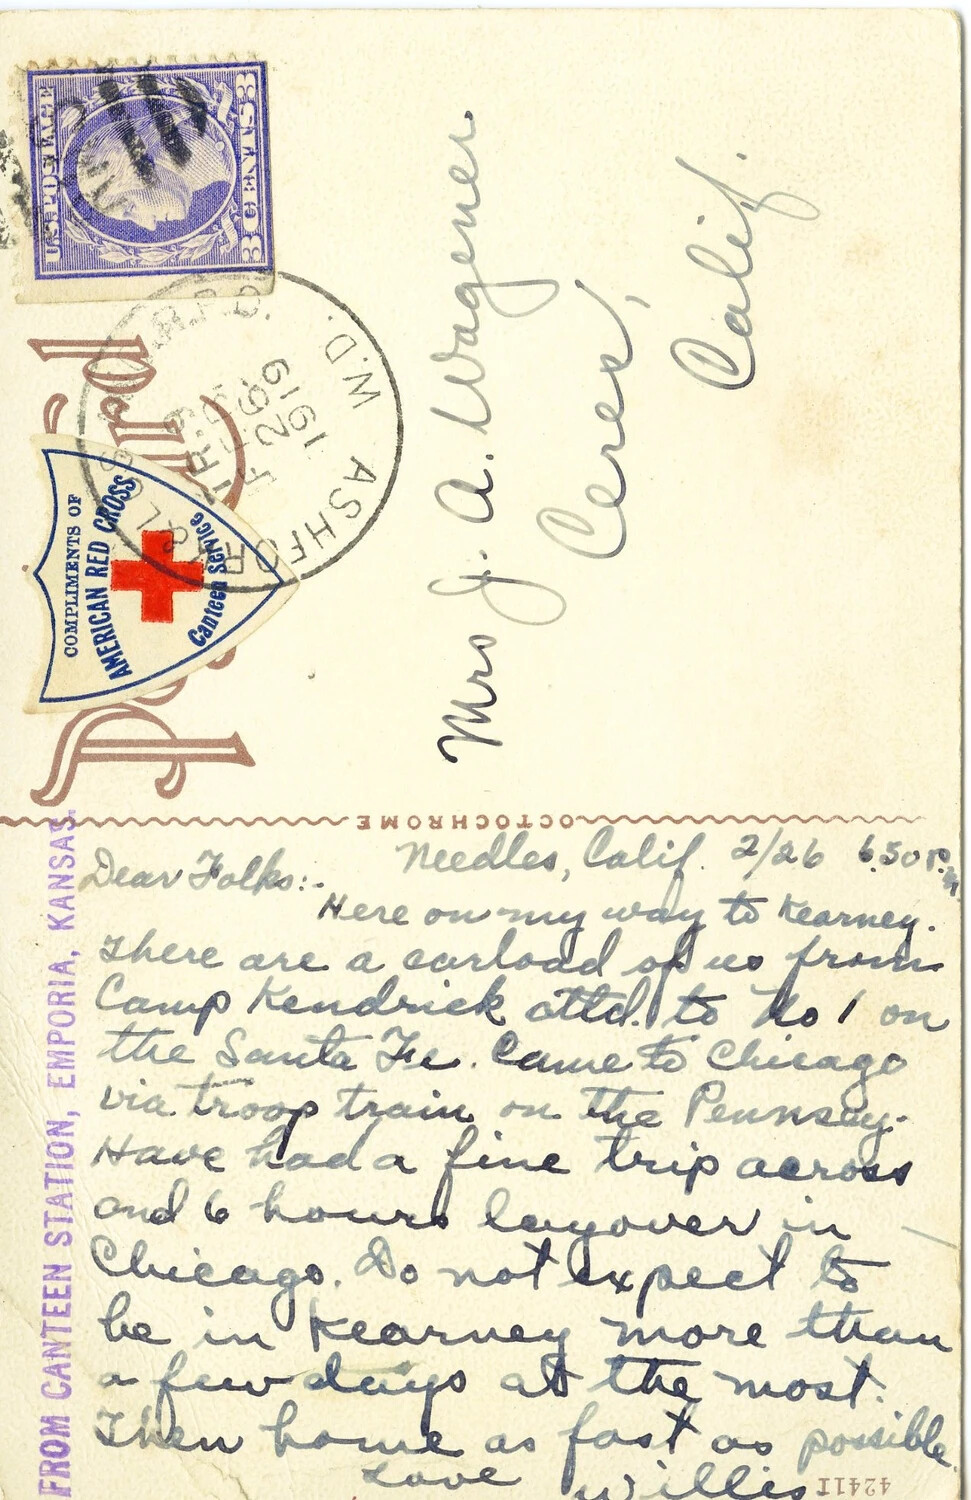 U.S. POSTAGE
3 CENTS 3
ASHFORK & LOS R.P.O.
W.D.
TR.9
FEB
26
1919
COMPLIMENTS OF
AMERICAN RED CROSS
Canteen Service
Mrs J. A. Wagener.
Ceres,
Calif.
OCTOCHROME
FROM CANTEEN STATION, EMPORIA, KANSAS.
Needles, Calif. 2/26 6.50 P.M.
Dear Folks:-
Here on my way to Kearney.
There are a carload of us from
Camp Kendrick attd. to No 1 on
the Santa Fe. Came to Chicago
via troop train on the Pennsey.
Have had a fine trip across
and 6 hours layover in
Chicago. Do not expect to
be in Kearney more than
a few days at the most.
Then home as fast as possible.
Love Willis
42411